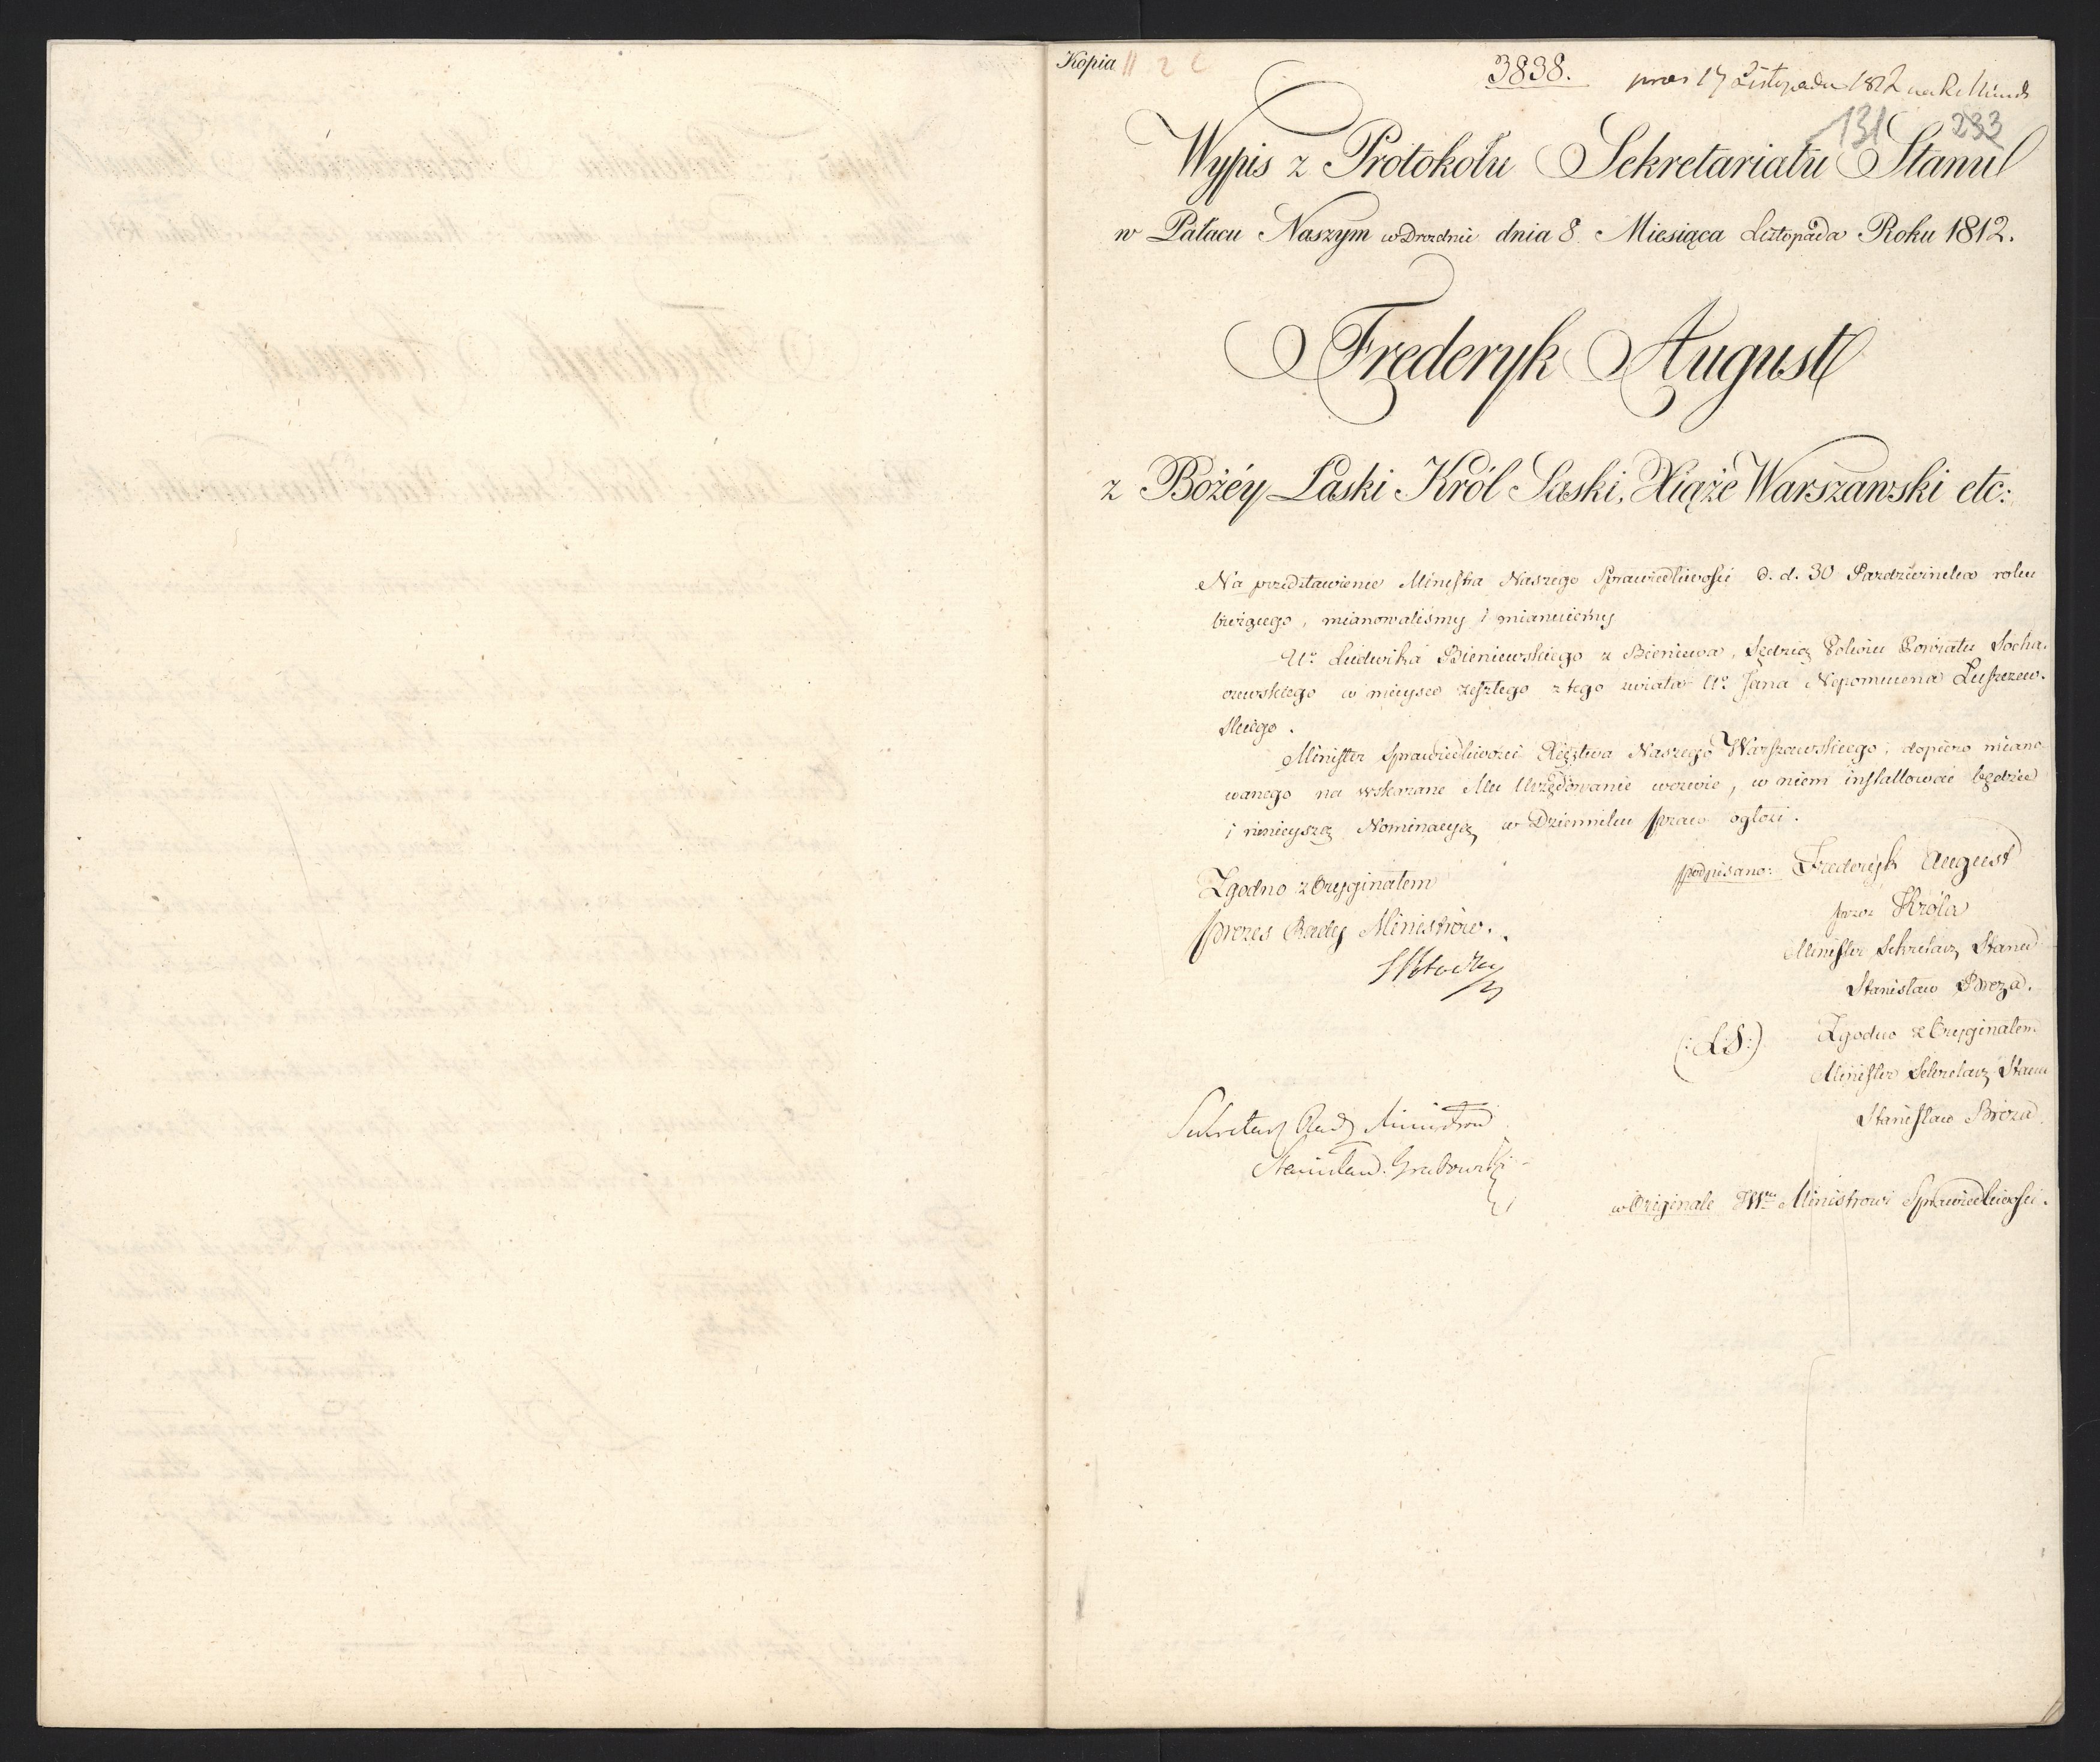 Kopia
3838.
pras 17 Listopada 1812
131 233
Wypis z Protokołu Sekretariatu Stanu
w Pałacu Naszym w Dreznie dnia 8 Miesiąca Listopada Roku 1812.
Frederyk August
z Bożéy Łaski Król Saski, Xiąże Warszawski etc:
Na przedstawienie Ministra Naszego Sprawiedliwości d. d. 30 Pazdziernika roku
bieżącego, mianowaliśmy i mianuiemy
Ur. Ludwika Bieniewskiego z Bieniewa, Sędzią Pokoiu Powiatu Socha-
czewskiego w mieysce zeszłego z tego świata Ur. Jana Nepomucena Łuszczew-
skiego.
Minister Sprawiedliwości Xięstwa Naszego Warszawskiego, dopiero miano-
wanego na wskazane Mu Urzędowanie wezwie, w niem installować będzie
i ninieyszą Nominacyą w Dzienniku praw ogłosi.
Zgodno z Oryginałem
podpisano: Frederyk August
Prezes Rady Ministrów.
przez Króla
Minister Sekretarz Stanu
SPotocki
Stanisław Breza.
(:LS:)
Zgodno z Oryginałem
Minister Sekretarz Stanu
Stanisław Breza
Sekretarz Rady Ministrów
Stanisław Grabowski
w Originale JWmu Ministrowi Sprawiedliwości.